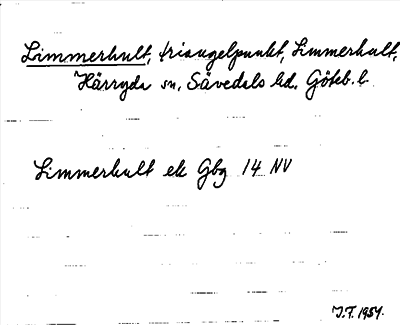 Limmerhult, triangelpunkt, Limmerhult,
Härryda sn, Sävedals hd, Göteb. l.
Limmerhult ek Gbg 14 NV
J.F. 1954.